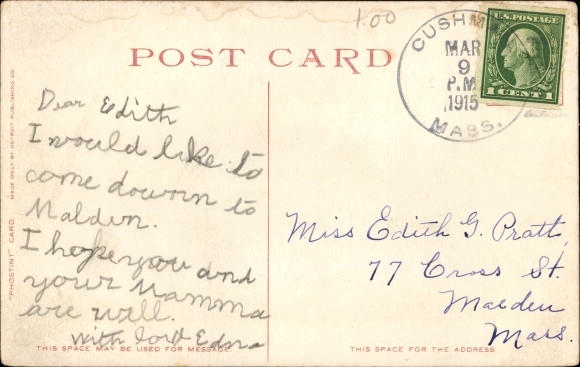 1.00
POST CARD
CUSHM
MAR
9
P.M
1915
MASS.
U.S. POSTAGE
1 CENT 1
Dear Edith
I would like to
come dowrn to
Maldun.
I hope you and
your Mamma
are well.
with lovE Edna
Miss Edith G. Pratt,
77 Cross St.
Malden
Mass.
"PHOSTINT" CARD.
MADE ONLY BY DETROIT PUBLISHING CO.
THIS SPACE MAY BE USED FOR MESSAGE.
THIS SPACE FOR THE ADDRESS.